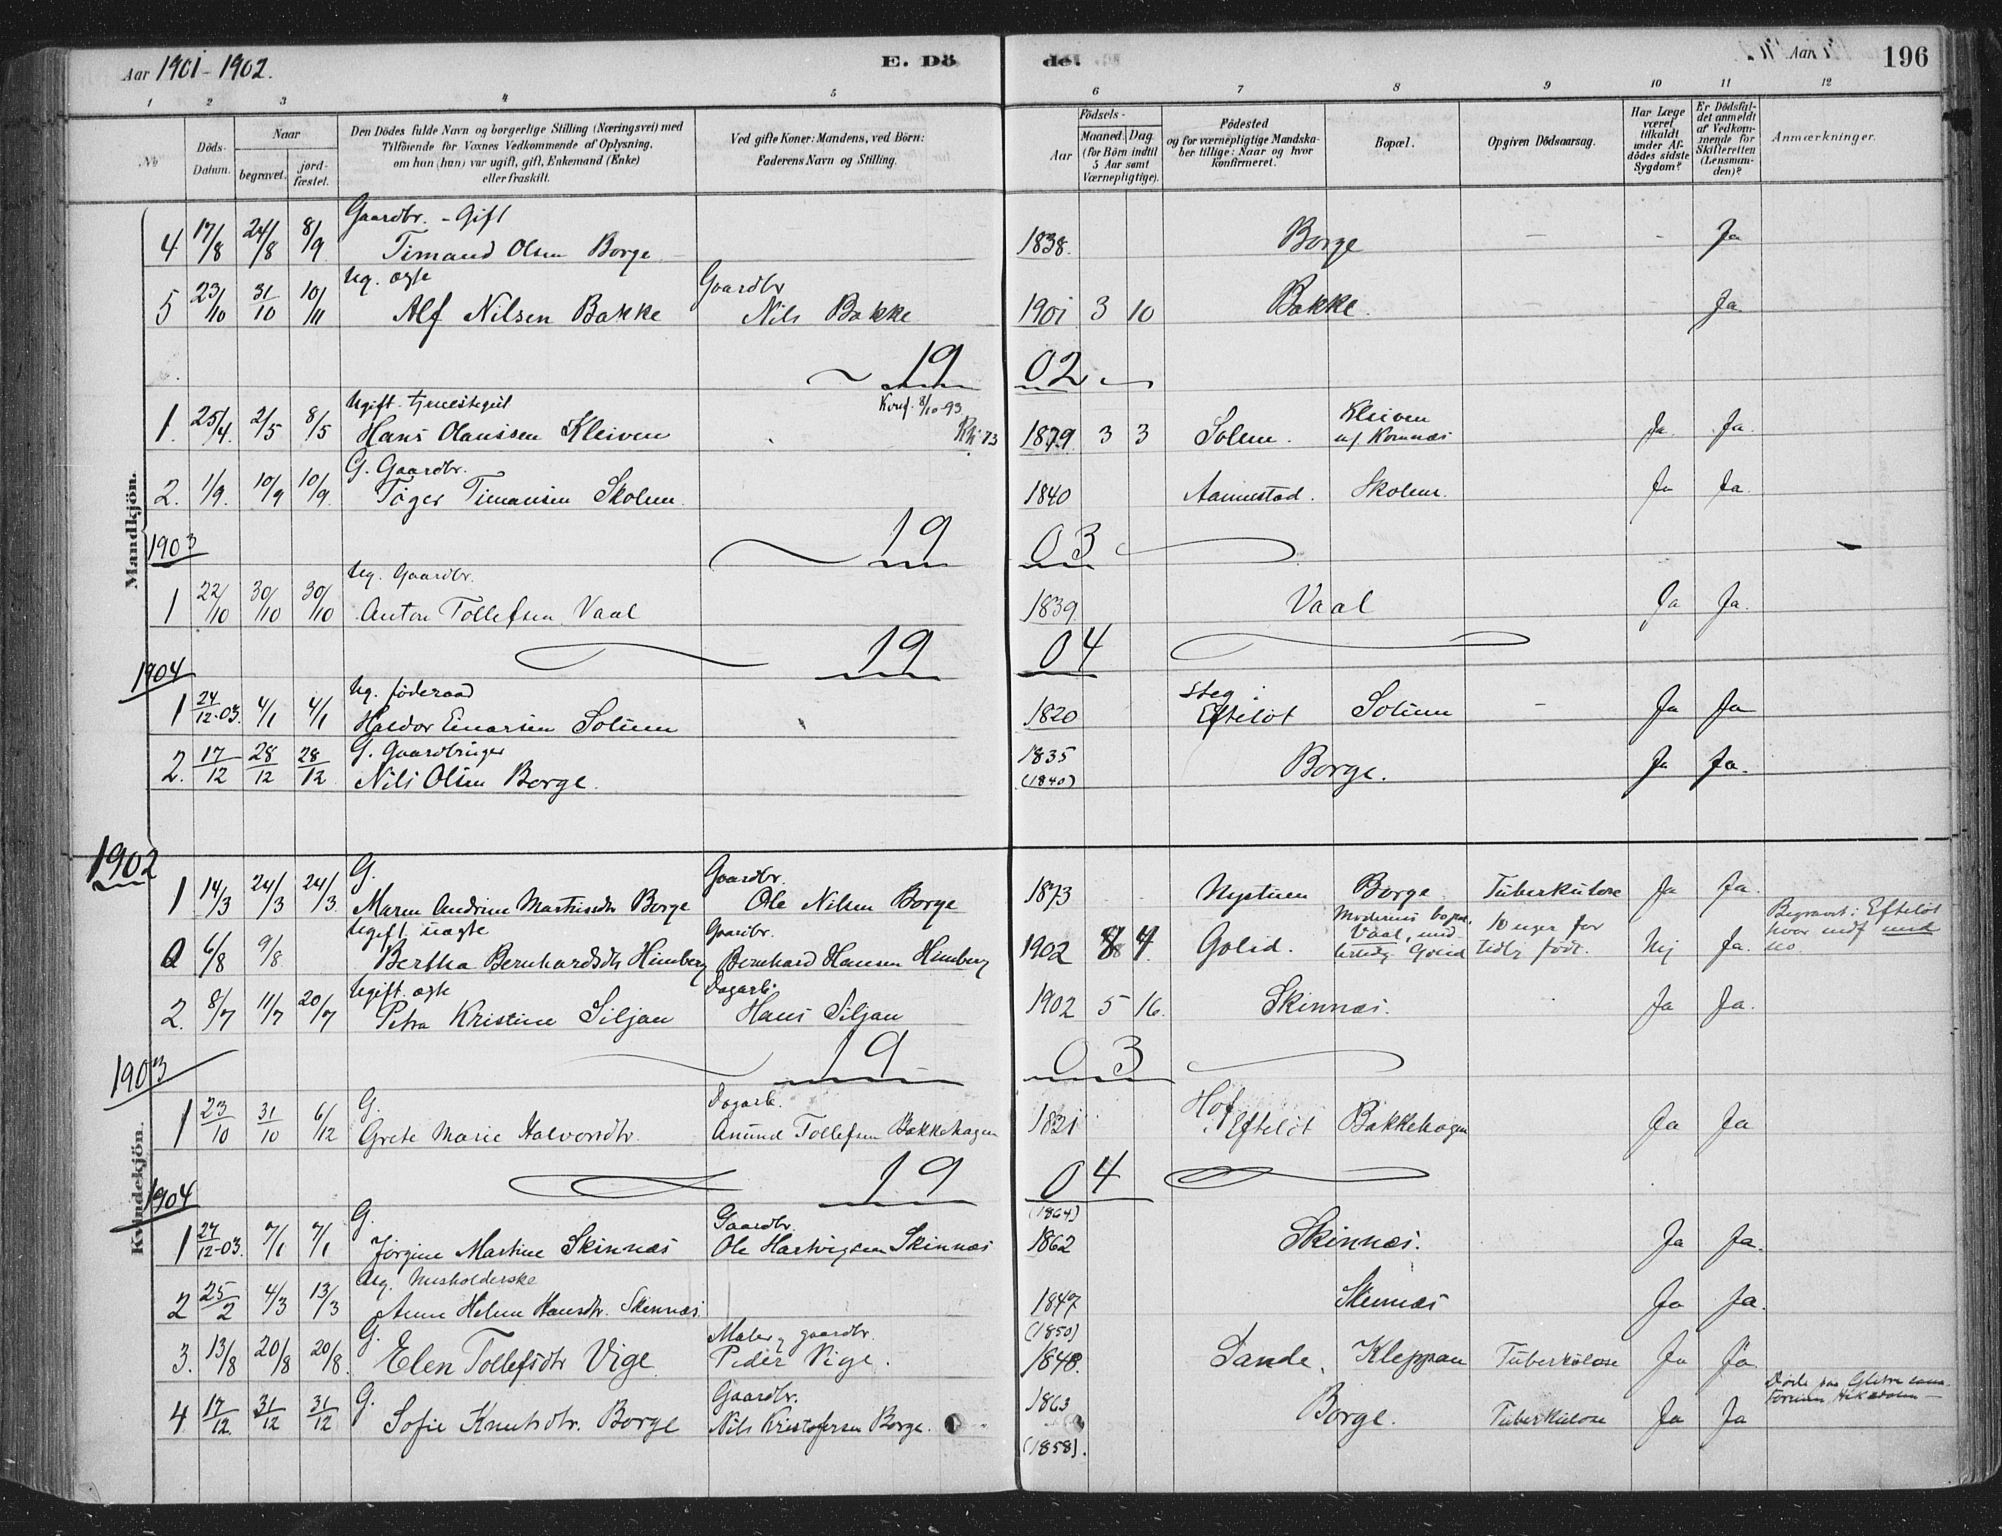 Aar 1901-1902. E. Dö de. Aar 196
1 2 3 4 5 6 7 8 9 10 11 12
No Döds-Datum. Naar begravet. jord-fæstet. Den Dödes fulde Navn og borgerlige Stilling (Næringsvei) med Tilföiende for Voxnes Vedkommende af Oplysning, om hun (han) var ugift, gift, Enkemand (Enke) eller fraskilt. Ved gifte Koner: Mandens, ved Börn: Faderens Navn og Stilling. Födsels- Aar Maaned. Dag. (for Börn indtil 5 Aar samt Værnepligtige). Födested og for værnepligtige Mandskaber tillige: Naar og hvor konfirmeret. Bopæl. Opgiven Dödsaarsag. Har Læge været tilkaldt under Afdödes sidste Sygdom? Er Dödsfaldet anmeldt af Vedkommende for Skifteretten (Lensmanden)? Anmærkninger.
Mandkjön.
Gaardbr. - Gift
4 17/8 24/8 8/9 Timand Olsen Borge 1838. Borge - - Ja
Ug. ægte Gaardbr
5 23/10 31/10 10/11 Alf Nilsen Bakke Nils Bakke 1901 3 10 Bakke. Ja
19 02
Ugift Konf. 8/10-93
1. 25/4. 2/5 8/5 Hans Olaussen Kleiven 1879. 3 3 Solem. Kleiven Ja. Ja.
G. Gaardbr.
2. 1/9. 10/9 10/9 Töger Timansen Skolem. 1840 Aannestad. Skolem. Ja Ja.
1903 19 03
Ug. Gaardbr.
1 22/10 30/10 30/10 Anton Tollefsen Vaal 1839. Vaal Ja Ja.
1904 19 04
Ug. föderaad
1 24/12-03. 4/1 4/1 Haldor Einarsen Solum 1820 Efteløt Solum - Ja Ja
G. Gaardbruger 1835
2. 17/12 28/12 28/12 Nils Olsen Borge. (1840) Borge. Ja Ja.
1902
Kvindekjön.
G. Gaardbr.
1 14/3 24/3 24/3. Maren Andrine Borge Ole Nilsen Borge 1873 Nystuen Borge Tuberkulose Ja Ja.
Ugift uægte Gaardbr. Moderens bopæl 10 uger for Begravet i Efteløt
0 6/8 9/8 Bertha Bernhardsdt Himberg Bernhard Hansen Himberg 1902 8 4. Golid. Vaal, tidlg född. Nej Ja. no.
Ugift. ægte Dagarb.
2. 8/7 11/7 20/7 Petra Kristine Siljan Hans Siljan 1902 5 16. Skinnæs. Ja Ja.
1903 19 03
G. Dagarb. Hof
1 23/10 31/10 6/12 Grete Marie Halvorsdtr. Anund Tollefsen Bakkehagen 1821 Efteløt Bakkehagen Ja Ja
1904 19 04
G. Gaardbr. (1864)
1 27/12-03. 7/1 7/1 Jørgine Martine Skinnæs Ole Hartvigsen Skinnæs 1862 Skinnæs. Ja Ja.
Ug. Husholderske
2 25/2 4/3 13/3 Anne Helene Hansdtr. Skinnæs 1847 Skinnæs Ja Ja.
G. Maler, gaardbr. (1850)
3. 13/8 20/8 20/8. Elen Tollefsdtr Vige Peder Vige. 1848. Sande. Kleppan Tuberkulose Ja Ja
G. Gaardbr. 1863
4 17/12. 31/12 31/12 Sofie Knutsdtr. Borge Nils Kristofersen Borge. Borge. Tuberkulose Ja Ja
(1858).